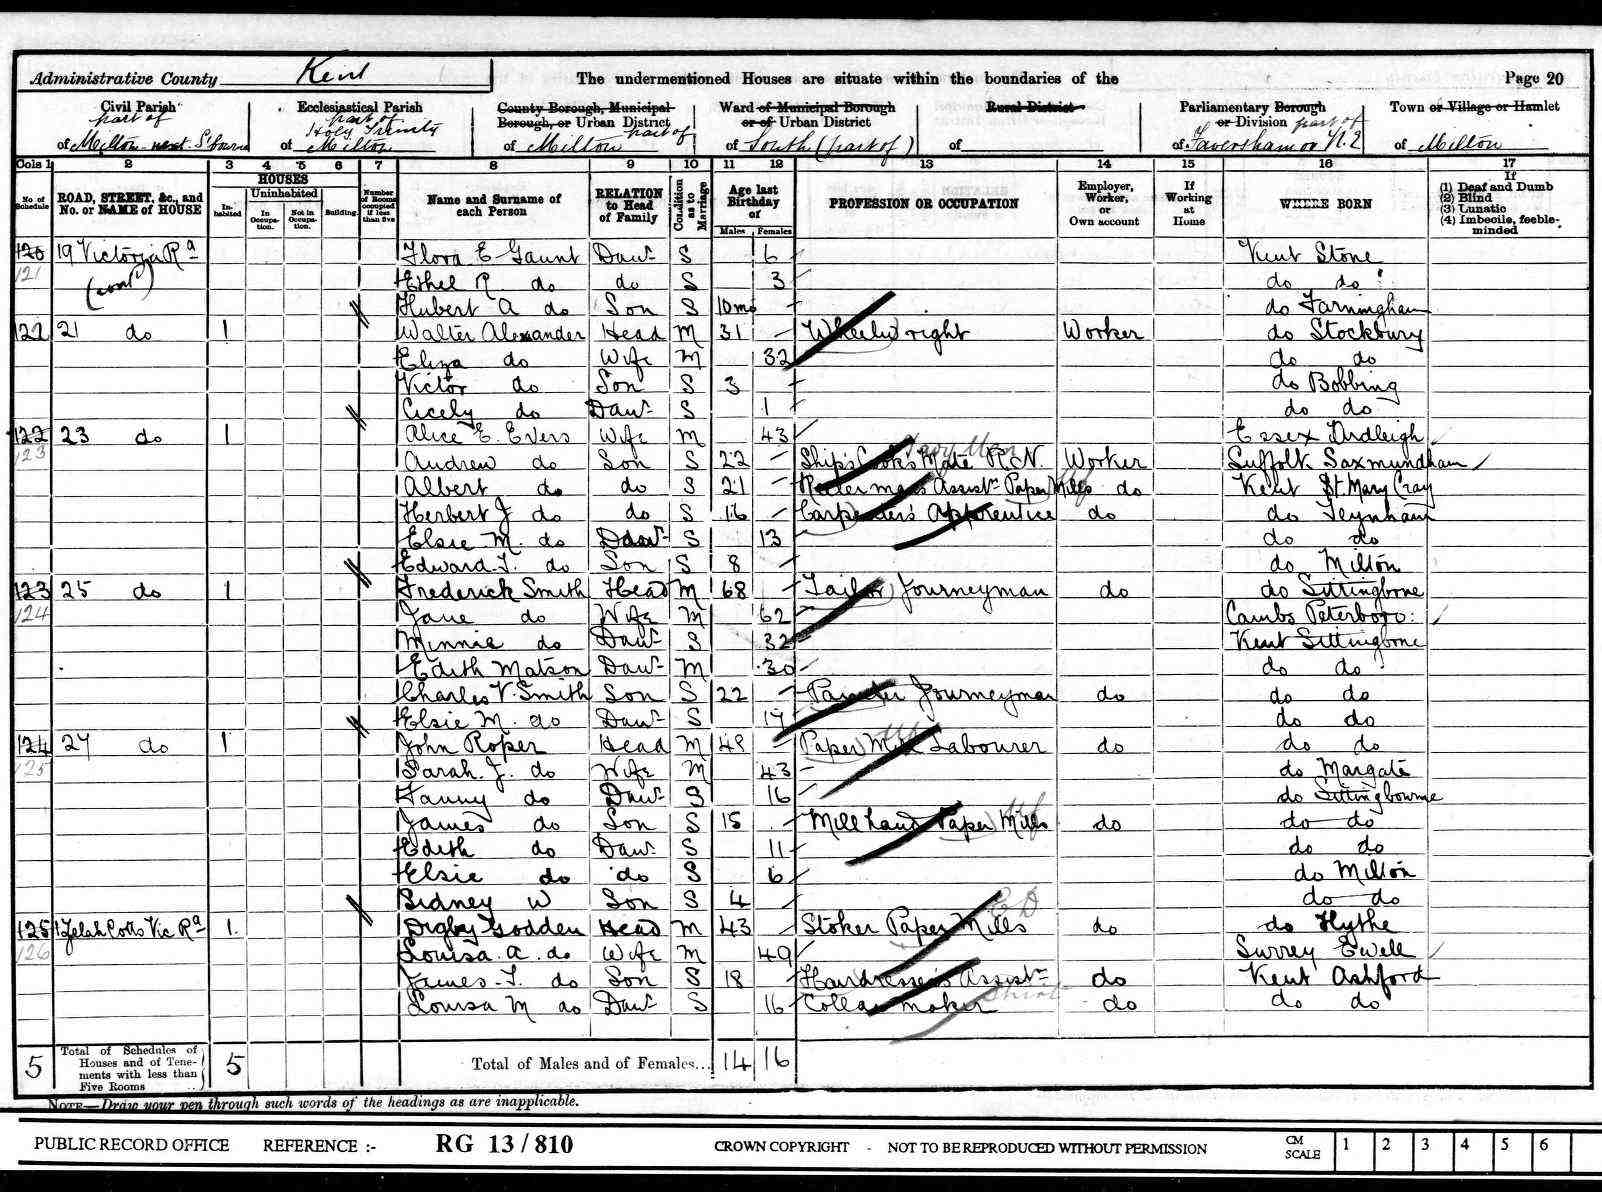 Administrative County Kent The undermentioned Houses are situate within the boundaries of the Page 20
Civil Parish Ecclesiastical Parish County Borough, Municipal Borough, or Urban District Ward of Municipal Borough or of Urban District Rural District Parliamentary Borough or Division Town or Village or Hamlet
part of part of part of part of
of Milton next of Holy Trinity Milton of Milton of South (part of) of of Faversham or N.E of Milton
Cols 1 2 3 4 5 6 7 8 9 10 11 12 13 14 15 16 17
No. of Schedule ROAD, STREET, &c., and No. or NAME of HOUSE HOUSES Inhabited Uninhabited In Occupation. Not in Occupation. Building. Number of Rooms occupied if less than five Name and Surname of each Person RELATION to Head of Family Condition as to Marriage Age last Birthday of Males Females PROFESSION OR OCCUPATION Employer, Worker, or Own account If Working at Home WHERE BORN If (1) Deaf and Dumb (2) Blind (3) Lunatic (4) Imbecile, feeble-minded
120 121 19 Victoria Rd Flora E Gaunt Daur S 6 Kent Stone
(cont) Ethel R do do S 3 do do
Hubert A do Son S 10 mo do Farningham
122 21 do 1 Walter Alexander Head M 31 Wheelwright Worker do Stockbury
Eliza do Wife M 32 do do
Victor do Son S 3 do Bobbing
Cicely do Daur S 1 do do
122 123 23 do 1 Alice E. Evers Wife M 43 Essex Ardleigh
Andrew do Son S 22 Ship's Cook's Mate R.N. Worker Suffolk Saxmundham
Albert do do S 21 Assistt Paper Mills do Kent St. Mary Cray
Herbert J do do S 16 Carpenter's Apprentice do do Teynham
Elsie M. do Daur S 13 do do
Edward T. do Son S 8 do Milton
123 124 25 do 1 Frederick Smith Head M 68 Tailor Journeyman do do Sittingbourne
Jane do Wife M 62 Cambs Peterboro:
Minnie do Daur S 32 Kent Sittingbourne
Edith Matson Daur M 30 do do
Charles V. Smith Son S 22 Painter Journeyman do do do
Elsie M. do Daur S do do
124 125 27 do 1 John Roper Head M 48 Paper Mill Labourer do do do
Sarah J. do Wife M 43 do Margate
Fanny do Daur S 16 do Sittingbourne
James do Son S 15 Mill hand Paper Mills do do do
Edith do Daur S 11 do do
Elsie do do S 6 do Milton
Sidney W Son S 4 do do
125 126 1 Zelah Cotts Vic Rd 1 Digby Godden Head M 43 Stoker Paper Mills do do Hythe
Louisa A. do Wife M 49 Surrey Ewell
James T. do Son S 18 Hairdresser's Assistt do Kent Ashford
Louisa M do Daur S 16 Collar maker do do do
5 Total of Schedules of Houses and of Tenements with less than Five Rooms 5 Total of Males and of Females... 14 16
NOTE—Draw your pen through such words of the headings as are inapplicable.
PUBLIC RECORD OFFICE REFERENCE :- RG 13 / 810 CROWN COPYRIGHT - NOT TO BE REPRODUCED WITHOUT PERMISSION CM SCALE 1 2 3 4 5 6